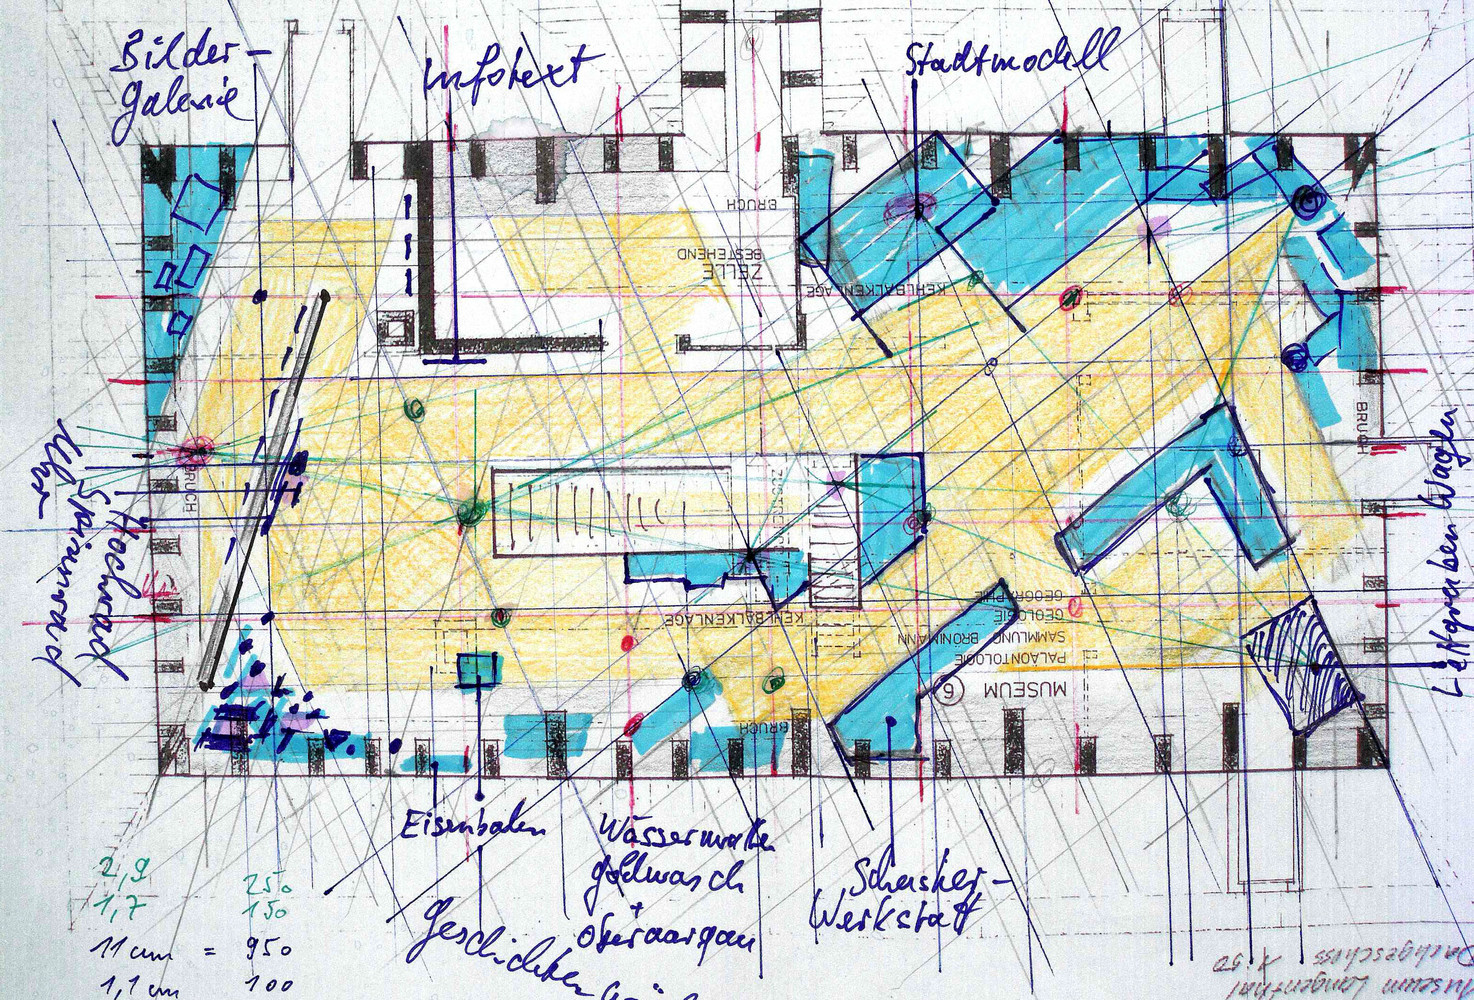 Bilder-
galerie
Infotext
Stadtmodell
BRUCH
ZELLE
BESTEHEND
KEHLBALKENLAGE
BRUCH
BRUCH
Uhr-
Spinnrad
Hochrad
Leitgraben Wagen
KEHLBALKENLAGE
GEOGRAPHIE
GEOLOGIE
SAMMLUNG BRÖNIMANN
PALÄONTOLOGIE
MUSEUM 6
BRUCH
Eisenbahn
Wässermatten
goldwasch
+
Oberaargau
Schuster-
Werkstatt
Geschichten
2,9 250
1,7 150
11 cm = 950
1,1 cm 100
Museum Langenthal
Dachgeschoss 1:50